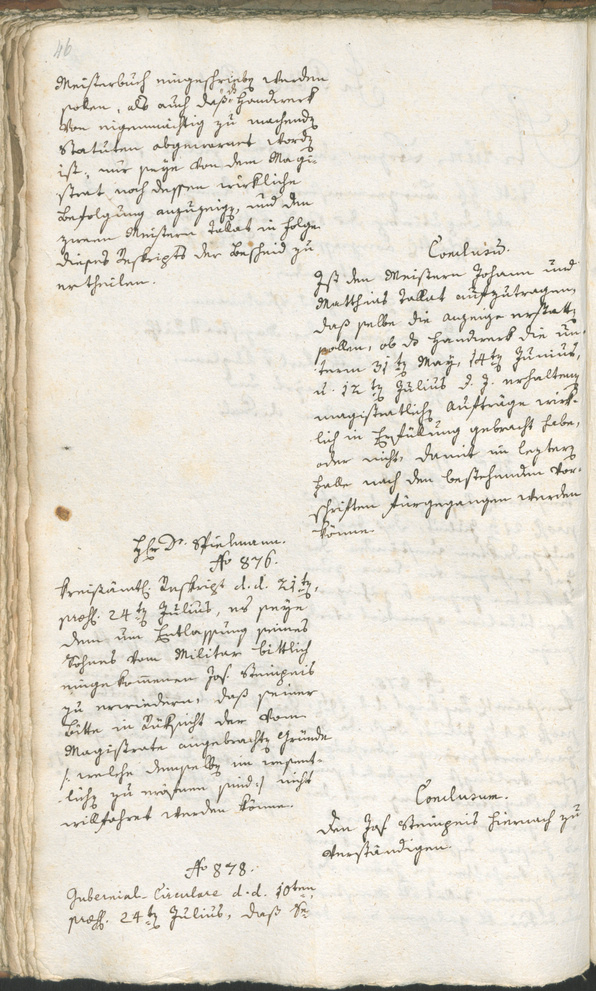 46
Meisterbuch eingeschrieben werden
sollen, als auch daß Handwerk
von eigenmächtig zu machenden
Statuten abgewarnet worden
ist, nur seye von dem Magi-
strat noch dessen wirkliche
Befolgung anzuzeigen, und den
zween Meistern Tallat in Folge
dieses Reskripts der Bescheid zu
ertheilen.
Conclusum.
Ist den Meistern Johann und
Matthias Tallat aufzutragen,
daß selbe die Anzeige erstatten
sollen, ob das Handwerk die un-
term 31ten May, 14ten Junius,
u. 12ten Julius d. J. erhaltenen
magistratlichen Aufträge wirk-
lich in Erfüllung gebracht habe,
oder nicht, damit im leztern
Falle nach den bestehenden Vor-
schriften fürgegangen werden
könne.
Hr. Dr. Spielmann.
No 876.
Kreisämtl. Reskript d. d. 21ten,
præs. 24ten Julius, es seye
dem um Entlassung seines
Sohnes vom Militar bittlich
eingekommenen Jos. Steinpeis
zu erwiedern, daß seiner
Bitte in Rüksicht der vom
Magistrate angebrachten Gründe
/: welche demselben im wesent-
lichen zu eröfnen sind :/ nicht
willfahret werden könne.
Conclusum.
Den Jos. Steinpeis hiernach zu
verständigen.
No 878.
Gubernial-Circulare d. d. 10ten,
præs. 24ten Julius, daß Se